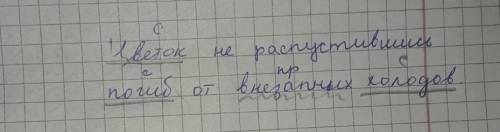 с
Цветок не распустившись
с пр с
погиб от внезапных холодов